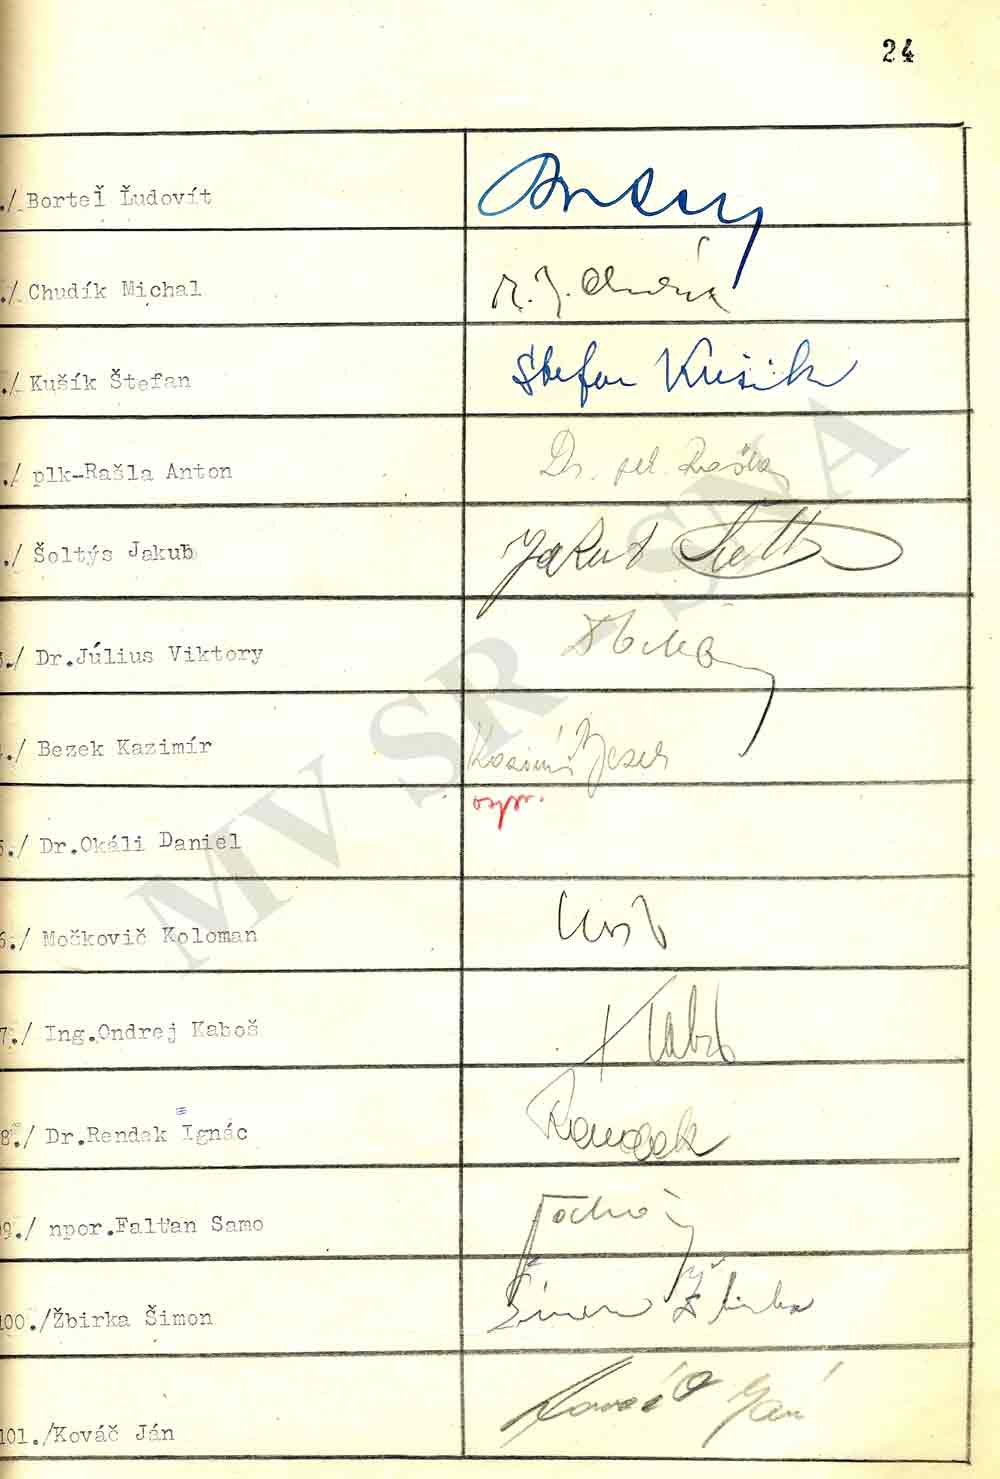 24
./ Borteľ Ľudovít
./ Chudík Michal
M. J. Chudík
./ Kušík Štefan
Štefan Kušik
./ plk-Rašla Anton
Dr. plk. Rašla
./ Šoltýs Jakub
Jakub
./ Dr.Július Viktory
./ Bezek Kazimír
Kazimír Bezek
ospr.
5./ Dr.Okáli Daniel
6./ Moškovič Koloman
7./ Ing.Ondrej Kaboš
Kaboš
8./ Dr.Rendek Ignác
Rendek
99./ npor.Falťan Samo
100./Žbirka Šimon
Šimon Žbirka
101./Kováč Ján
Kováč Ján
MV SR - SNA